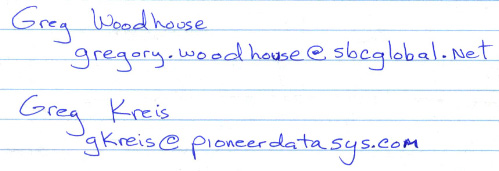 Greg Woodhouse
gregory.woodhouse@sbcglobal.Net
Greg Kreis
gkreis@pioneerdatasys.com